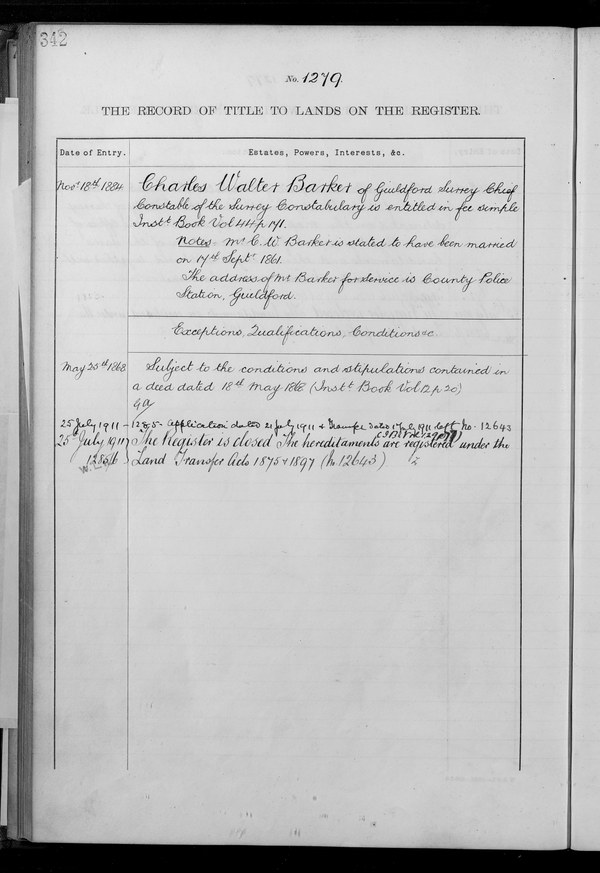 342
No. 1279.
THE RECORD OF TITLE TO LANDS ON THE REGISTER.
Date of Entry.
Estates, Powers, Interests, &c.
Novr 18th 1884
Charles Walter Barker of Guildford Surrey Chief
Constable of the Surrey Constabulary is entitled in fee simple
Instt Book Vol 44 p 171.
Note:- Mr C. W. Barker is stated to have been married
on 17th Septr 1861.
The address of Mr Barker for service is County Police
Station, Guildford.
Exceptions, Qualifications, Conditions &c.
May 25th 1868
Subject to the conditions and stipulations contained in
a deed dated 18th May 1868 (Instt Book Vol 12 p 20)
25 July 1911 - 1285 - Application dated 21 July 1911 & Transfer dated July 1911 No. 12643
25 July 1911
The Register is closed The hereditaments are registered under the
1285/6
Land Transfer Acts 1875 & 1897 (No. 12643)